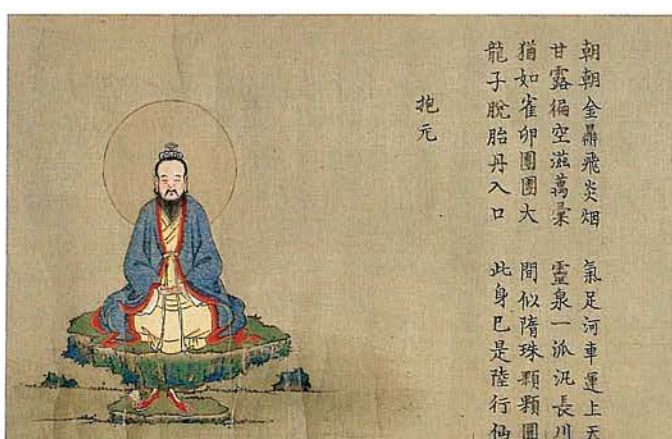 朝朝金鼎飛炎烟　氣足河車運上天
甘露徧空滋萬彙　靈泉一派汎長川
猶如雀卵團團大　間似隋珠顆顆圓
龍子脫胎丹入口　此身已是陸行仙
抱元